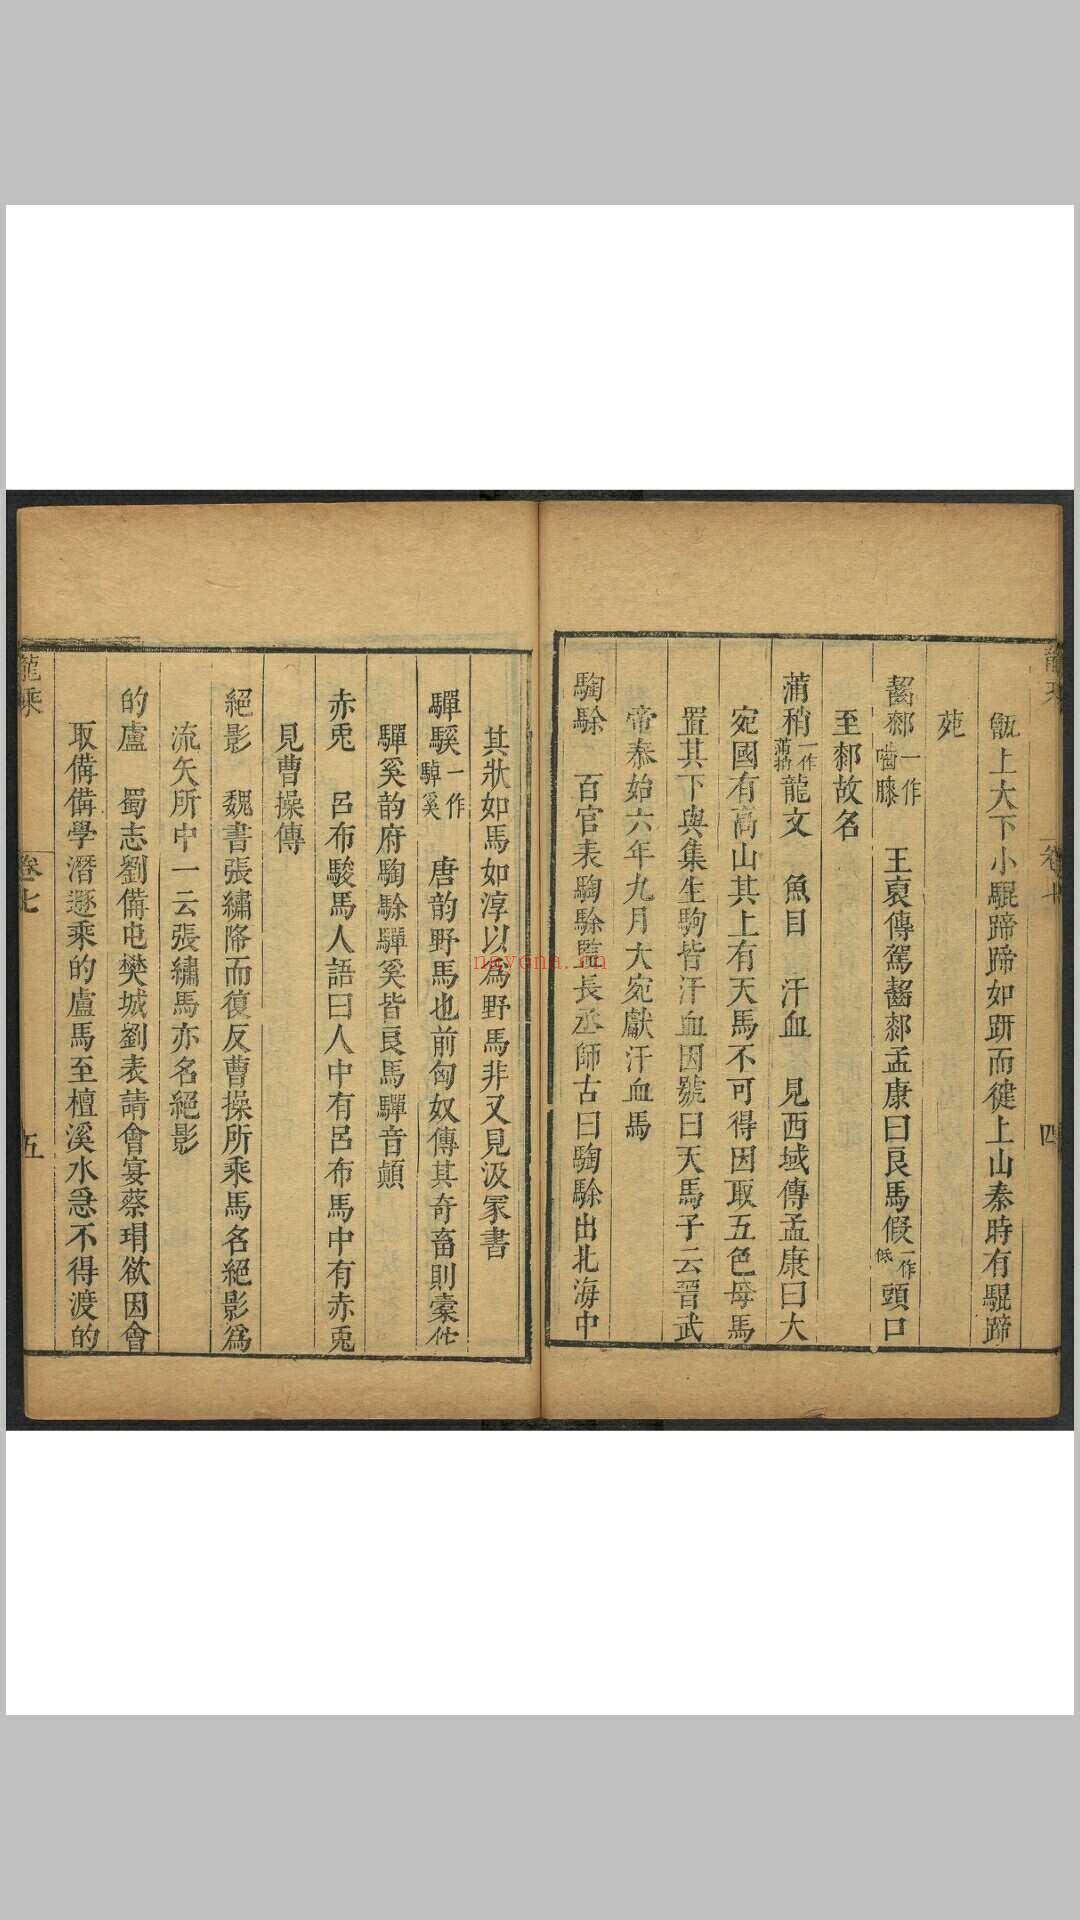 甑上大下小騉蹄蹄如趼而健上山秦時有騉蹄
苑
齧郯一作嚙膝　王襃傳駕齧郯孟康曰良馬假一作低頭口
至郯故名
蒲稍一作蒲梢龍文　魚目　汗血　見西域傳孟康曰大
宛國有高山其上有天馬不可得因取五色母馬
置其下與集生駒皆汗血因號曰天馬子云晉武
帝泰始六年九月大宛獻汗血馬
騊駼　百官表騊駼監長丞師古曰騊駼出北海中
卷七
四
其狀如馬如淳以為野馬非又見汲冢書
驒騱一作驒奚　唐韵野馬也前匈奴傳其奇畜則橐佗
驒奚韵府騊駼驒奚皆良馬驒音顛
赤兎　呂布駿馬人語曰人中有呂布馬中有赤兎
見曹操傳
絕影　魏書張繡降而復反曹操所乘馬名絕影為
流矢所中一云張繡馬亦名絕影
的盧　蜀志劉備屯樊城劉表請會宴蔡瑁欲因會
取備備學潛遯乘的盧馬至檀溪水急不得渡的
龍乘
卷七
五
nayona.cn